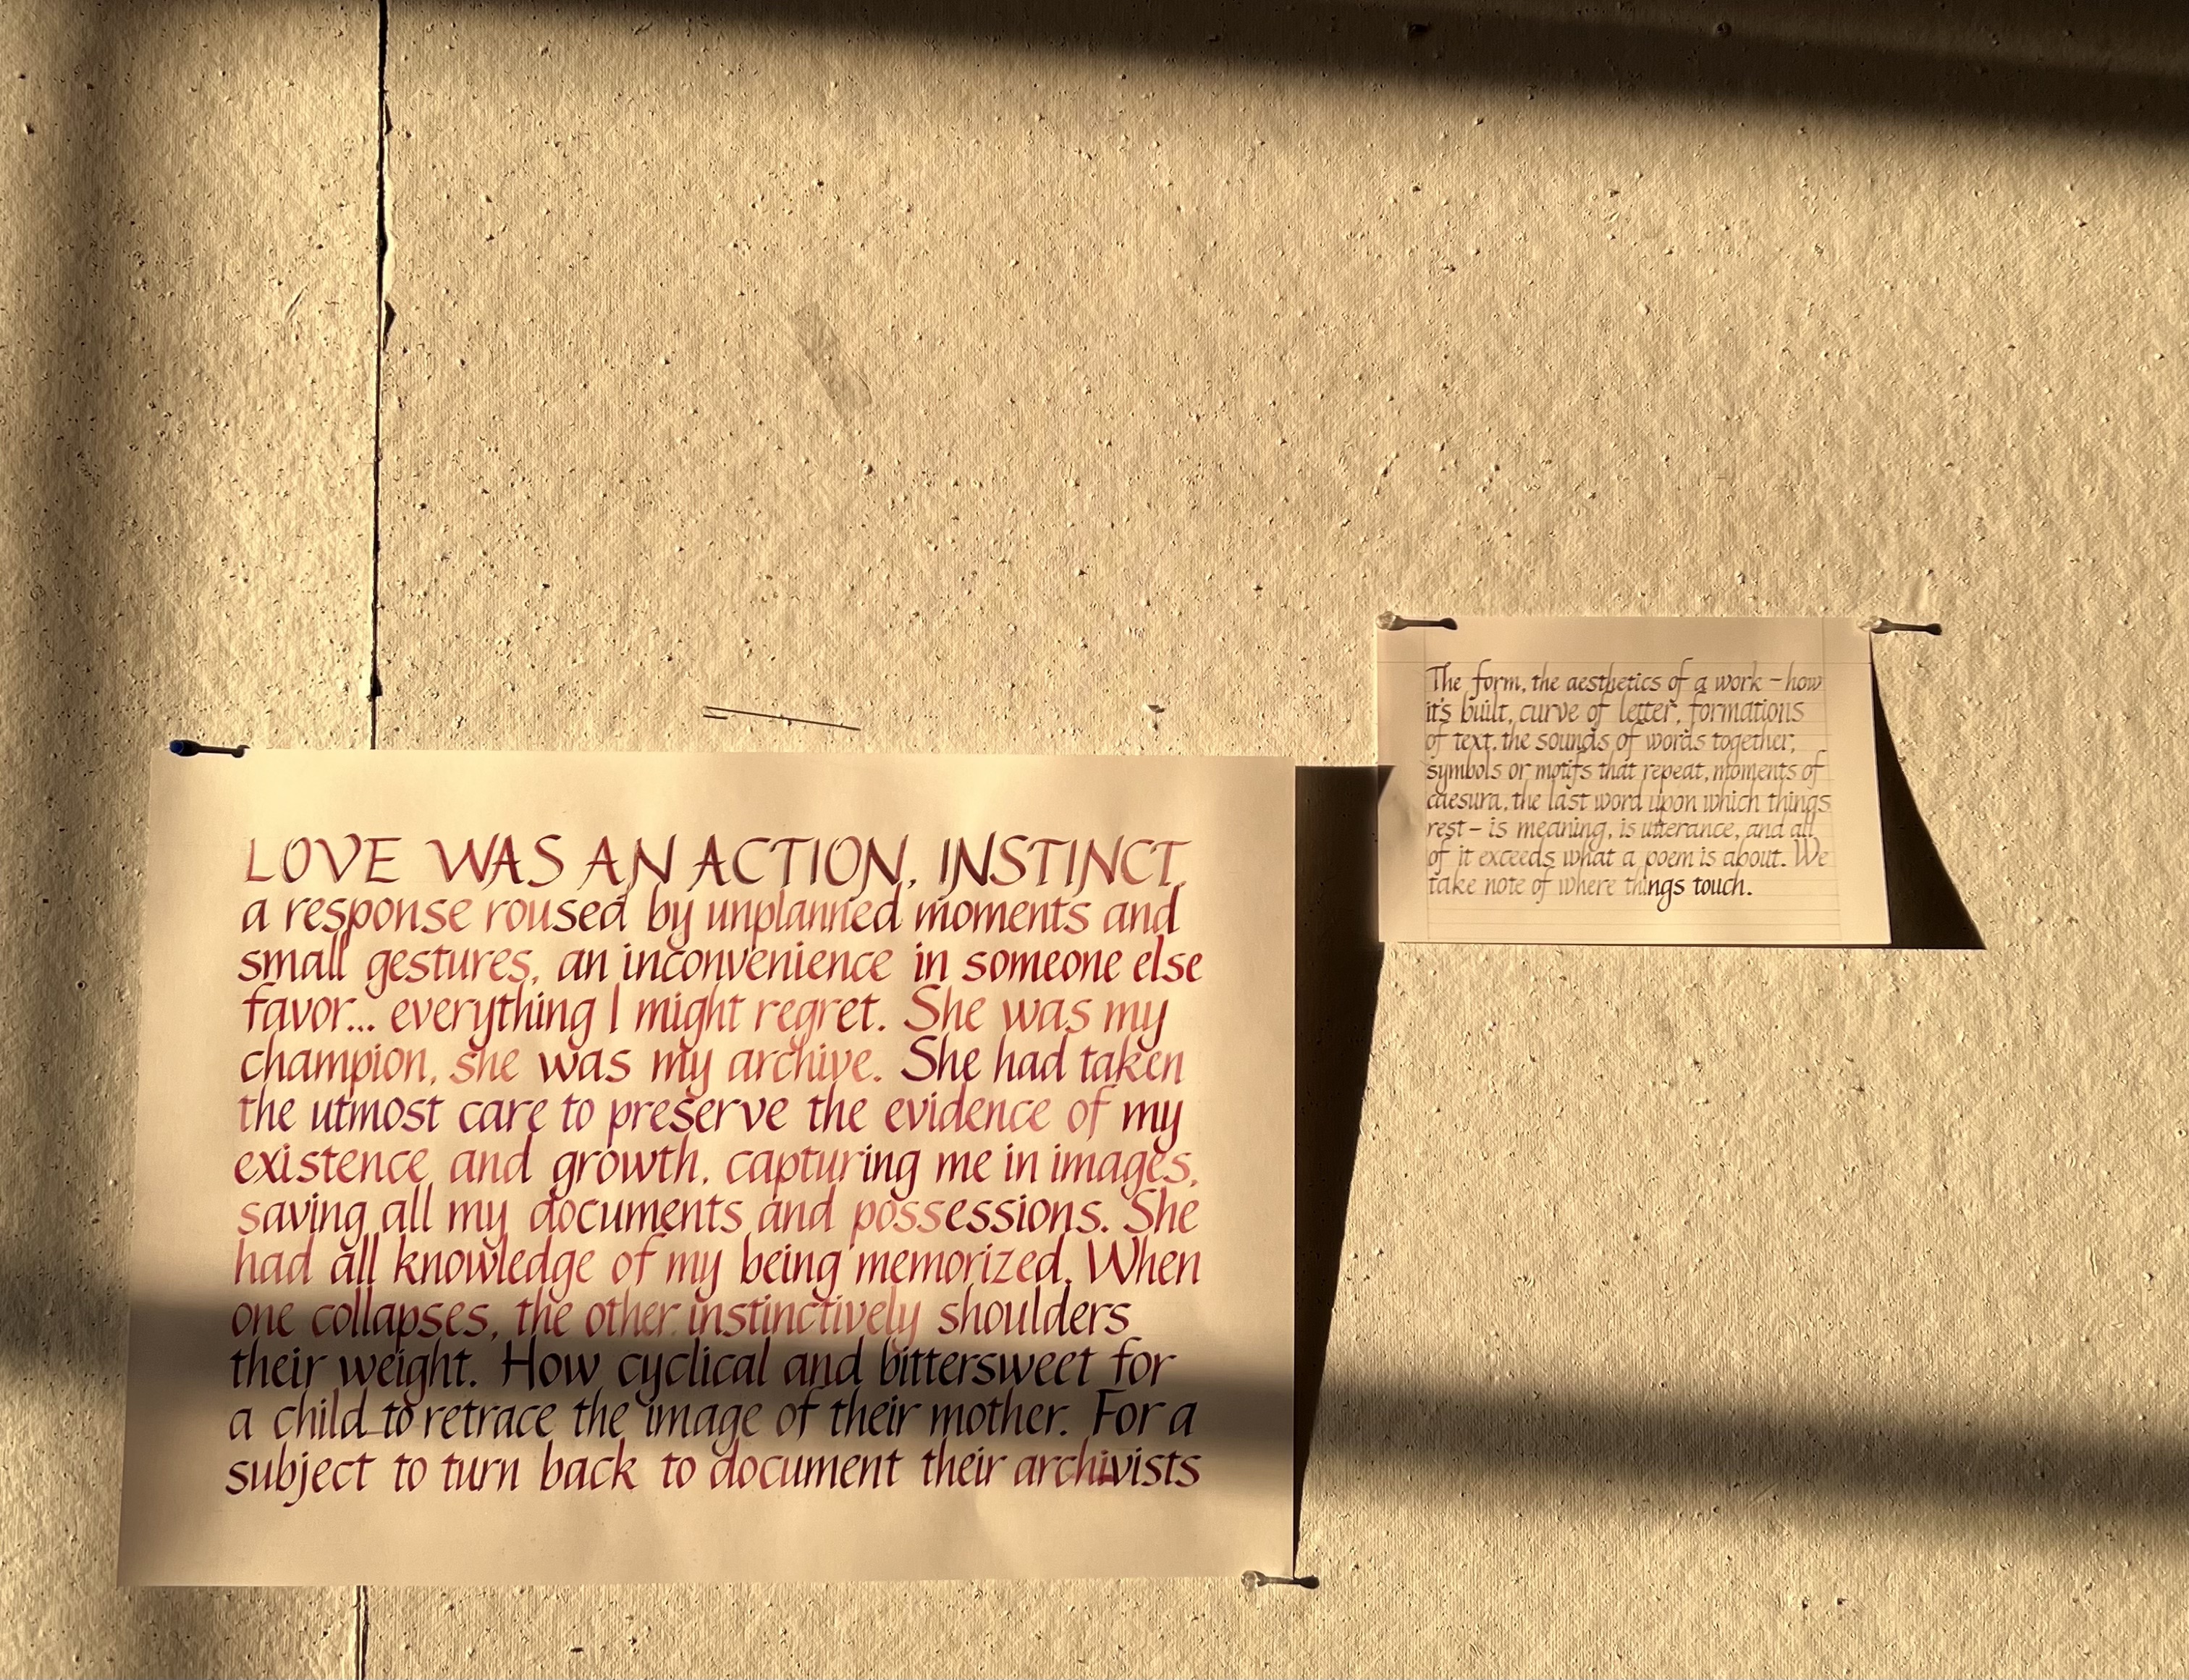 LOVE WAS AN ACTION, INSTINCT,
a response roused by unplanned moments and
small gestures, an inconvenience in someone else
favor... everything I might regret. She was my
champion, she was my archive. She had taken
the utmost care to preserve the evidence of my
existence and growth, capturing me in images,
saving all my documents and possessions. She
had all knowledge of my being memorized. When
one collapses, the other instinctively shoulders
their weight. How cyclical and bittersweet for
a child to retrace the image of their mother. For a
subject to turn back to document their archivists
The form, the aesthetics of a work – how
it's built, curve of letter, formations
of text, the sounds of words together,
symbols or motifs that repeat, moments of
caesura, the last word upon which things
rest – is meaning, is utterance, and all
of it exceeds what a poem is about. We
take note of where things touch.